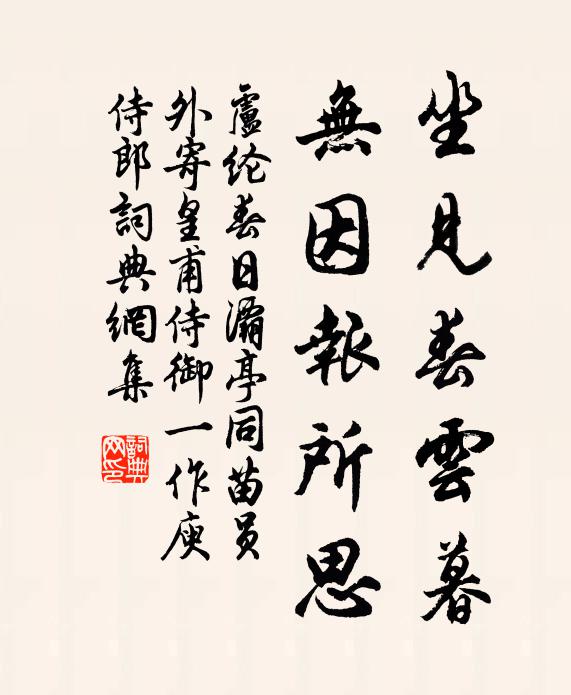 坐見春雲暮
無因報所思
盧纶春日灞亭同苗员
外寄皇甫侍御一作庾
侍郎詞典網集
詞典网印